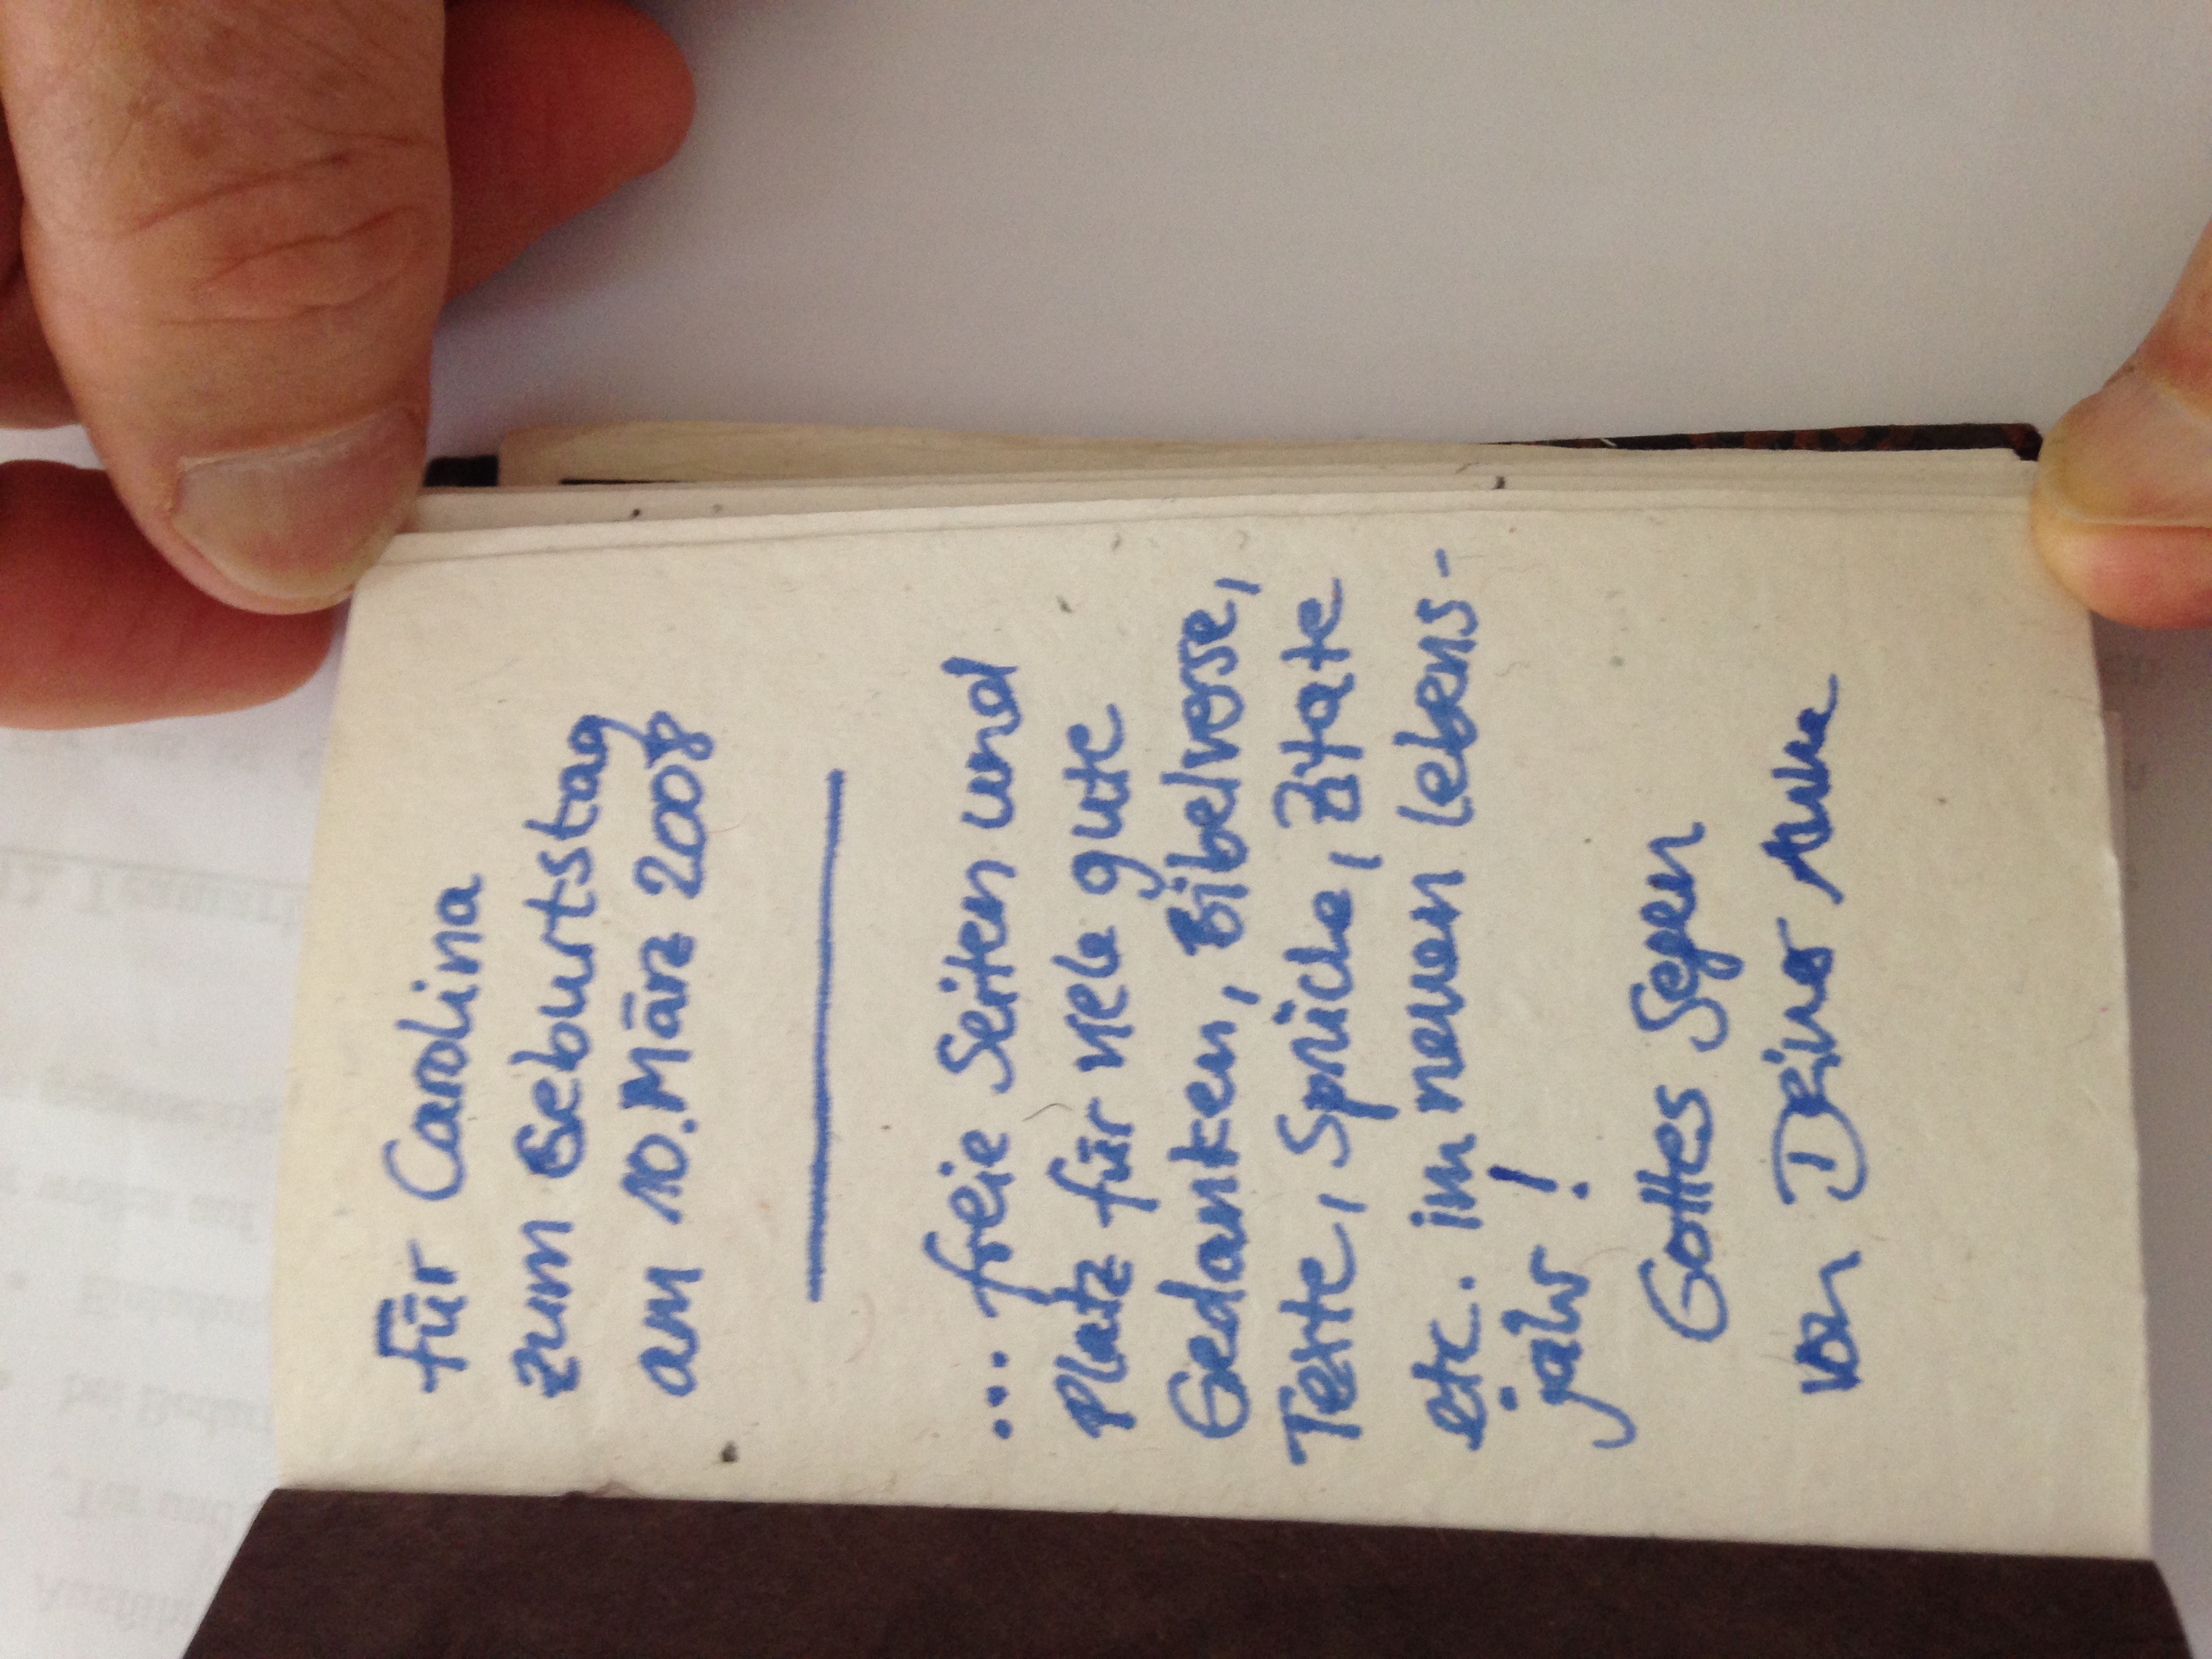 für Carolina
zum Geburtstag
am 10. März 2008
... freie Seiten und
Platz für viele gute
Gedanken, Bibelverse,
Texte, Sprüche, Zitate
etc. im neuen Lebens-
jahr !
Gottes Segen
von Deiner